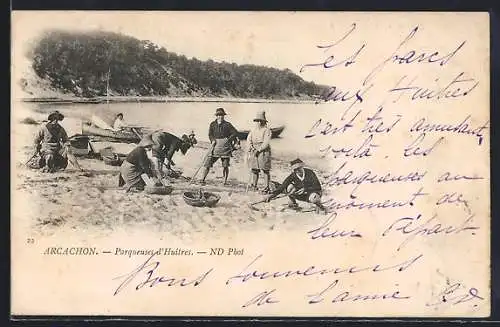 Les parcs
aux Huitres
c'est très amusant
voilà les
Parqueuses au
moment de
leur Départ.
22
ARCACHON. — Parqueuses d'Huîtres. — ND Phot
Bons Souvenirs
de l'amie